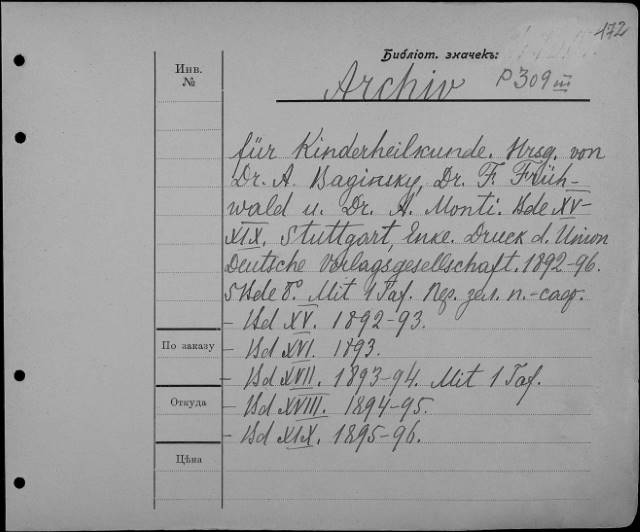 472
Библіот. значекъ:
Инв.
№
Archiv P 309 III
für Kinderheilkunde. Hrsg. von
Dr. A. Baginsky, Dr. F. Früh-
wald u. Dr. A. Monti. Bde XV-
XIX. Stuttgart, Enke. Druck d. Union
Deutsche Verlagsgesellschaft. 1892-96.
5 Bde 8°. Mit 1 Taf. Пер. зел. п.-саф.
- Bd XV. 1892-93.
По заказу
- Bd XVI. 1893.
- Bd XVII. 1893-94. Mit 1 Taf.
Откуда
- Bd XVIII. 1894-95.
- Bd XIX. 1895-96.
Цѣна